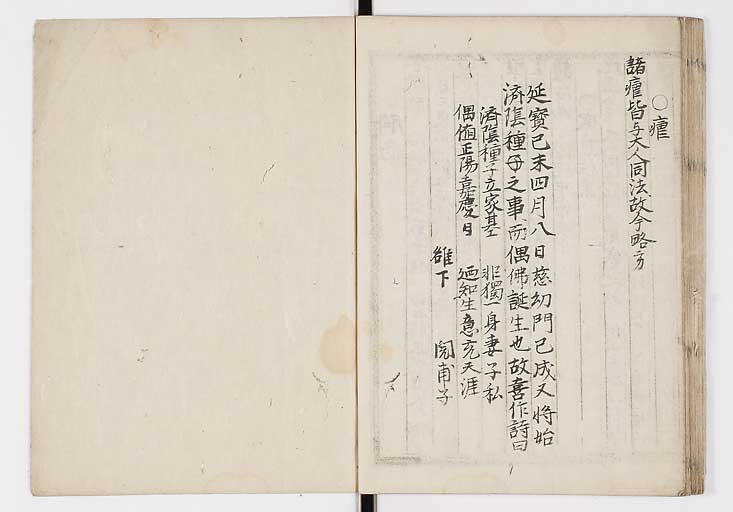 ○瘧
諸瘧皆与大人同法故今略方
延寶己未四月八日慈幼門已成又將始
済陰種子之事而偶佛誕生也故喜作詩曰
済陰種子立家基 非獨一身妻子私
偶値正陽嘉慶日 廼知生意充天涯
雒下 閲甫子